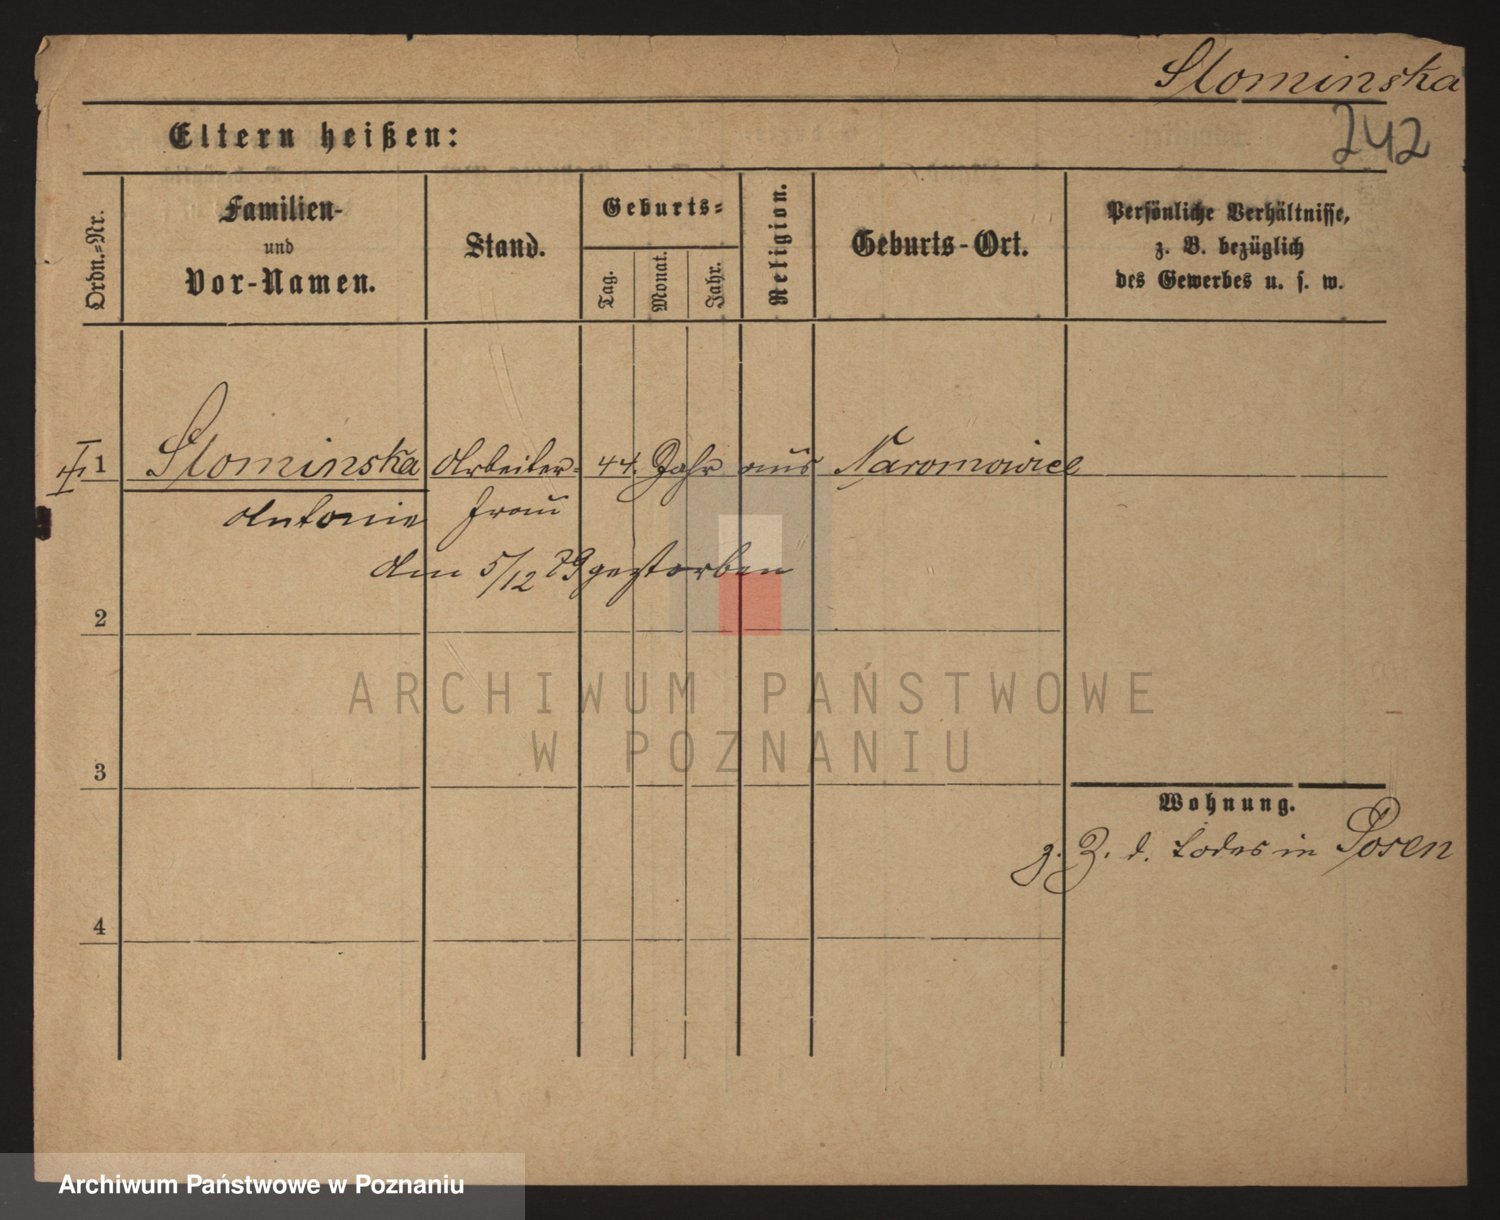 Slominska
Eltern heißen:
242
Ordn.-Nr.
Familien-
und
Vor-Namen.
Stand.
Geburts-
Tag.
Monat.
Jahr.
Religion.
Geburts-Ort.
Persönliche Verhältnisse,
z. B. bezüglich
des Gewerbes u. s. w.
1 Slominska Arbeiter- 44. Jahr aus Naramowice
Antonie frau
am 5/12 79 gestorben
2
ARCHIWUM PAŃSTWOWE
W POZNANIU
3
Wohnung.
z. Z. d. Todes in Posen
4
Archiwum Państwowe w Poznaniu